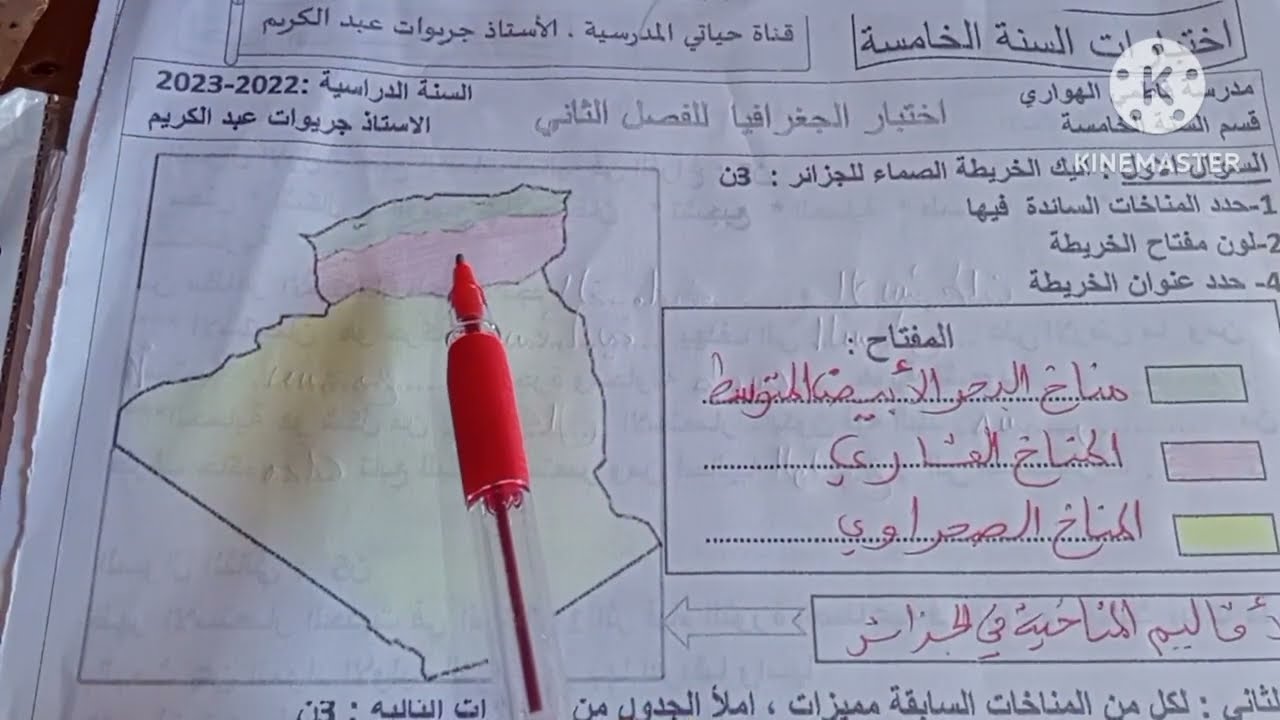 اختبارات السنة الخامسة
قناة حياتي المدرسية . الأستاذ جريوات عبد الكريم
مدرسة الهواري
قسم السنة الخامسة
اختبار الجغرافيا للفصل الثاني
السنة الدراسية :2022-2023
الاستاذ جريوات عبد الكريم
KINEMASTER
السؤال الأول : إليك الخريطة الصماء للجزائر : 3ن
1-حدد المناخات السائدة فيها
2-لون مفتاح الخريطة
4- حدد عنوان الخريطة
المفتاح :
مناخ البحر الأبيض المتوسط
المناخ القاري
المناخ الصحراوي
الأقاليم المناخية في الجزائر
الثاني : لكل من المناخات السابقة مميزات ، املأ الجدول من ات التالية : 3ن